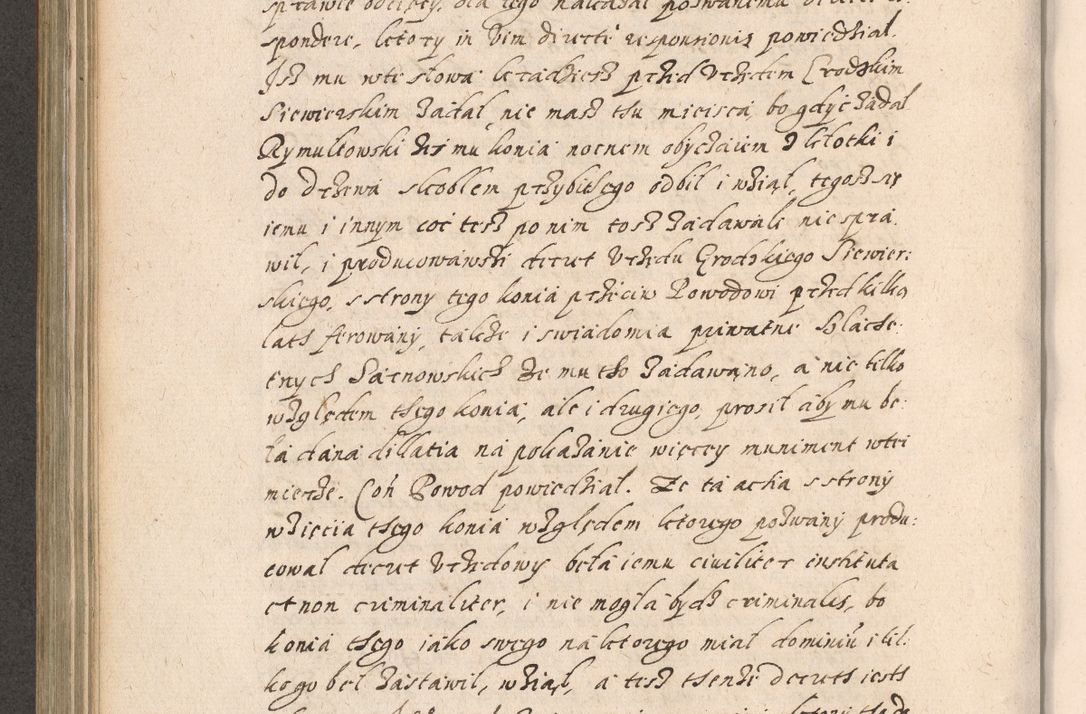 sprawie odcięty, dla tego nakazał pozwanemu
spondere, ktory in vim directe responsionis powiedział.
Isz mu wte słowa kradziesz przed Vrzędem Grodzkim
Siewierskim zadał, nie masz thu mieisca, bo gdyć zadał
Rymułtowski żeś mu konia nocnem obyczaiem z kłotki i
do drzewa skoblem przybithego odbił i wział, tegosz się
iemu i innym coć tesz po nim tosz zadawali nie spra
wił, i producowawszi decret Vrzędu Grodzkiego Siewier:
skiego, s strony tego konia przeciw Powodowi przed kilką
lath ferowany, także i swiadomia priwatne Szlache:
tnych Sarnowskich że mu tho zadawano, a nie tilko
względem thego konia, ale i drugiego, prosił aby mu be:
ła dana dillatia na pokazanie więcey muniment wtei
mierze. Coń Powod powiedział. Że ta actia s strony
wzięcia thego konia względem ktorego pozwany produ:
cował decret Vrzędowy beła iemu civiliter instituta
et non criminaliter, i nie mogła bydz criminalis, bo
konia thego iako swego na ktorego miał dominiu i lil:
kogo beł zastawił, wział, a tesz thenże decreth iesth